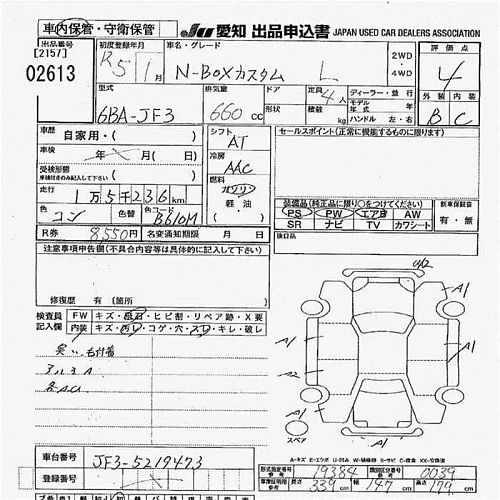 車内保管・守衛保管
JU 愛知 出品申込書 JAPAN USED CAR DEALERS ASSOCIATION
出品番号
[2157]
02613
初度登録年月
R5 1月
車名・グレード
N-BOXカスタム L
2WD
・
4WD
評価点
4
外装 内装
B C
型式
6BA-JF3
排気量
660 cc
ドア
形状
定員 4人
積載 kg
ディーラー・並行
モデル年式 年
ハンドル 左・右
車歴 自家用・( )
車検 年 月( 日)
受検形態
車検付きのみ記入して下さい ( )
走行 1万5千236km
色 コン 色替 色コード B610M
R券 8,550円 名変通知期限 月 日
シフト
AT
冷房
AAC
燃料
ガソリン
軽・油
( )
セールスポイント(正常に機能するものに限ります)
装備品(純正品に限り○をつけてください)
PS PW エアB AW
SR ナビ TV カワシート
新車保証書
有・無
後日品
注意事項申告欄(不具合内容等は具体的に記入して下さい)
修復歴 有(箇所 )
検査員
記入欄
FW キズ・飛石・ヒビ割・リペア跡・X要
内装 キズ・汚レ・コゲ・穴・スレ・キレ・破レ
A1
A1
A2
A1
A1
スペア
A-キズ E-エクボ U-凹み W-補修跡 S-サビ C-腐食 XX-交換済
車台番号 JF3-5219473
登録番号
形式指定番号 参考 19384 類別区分番号 参考 0039
車庫証明用 参考 長さ 339cm 幅 147cm 高さ 179cm